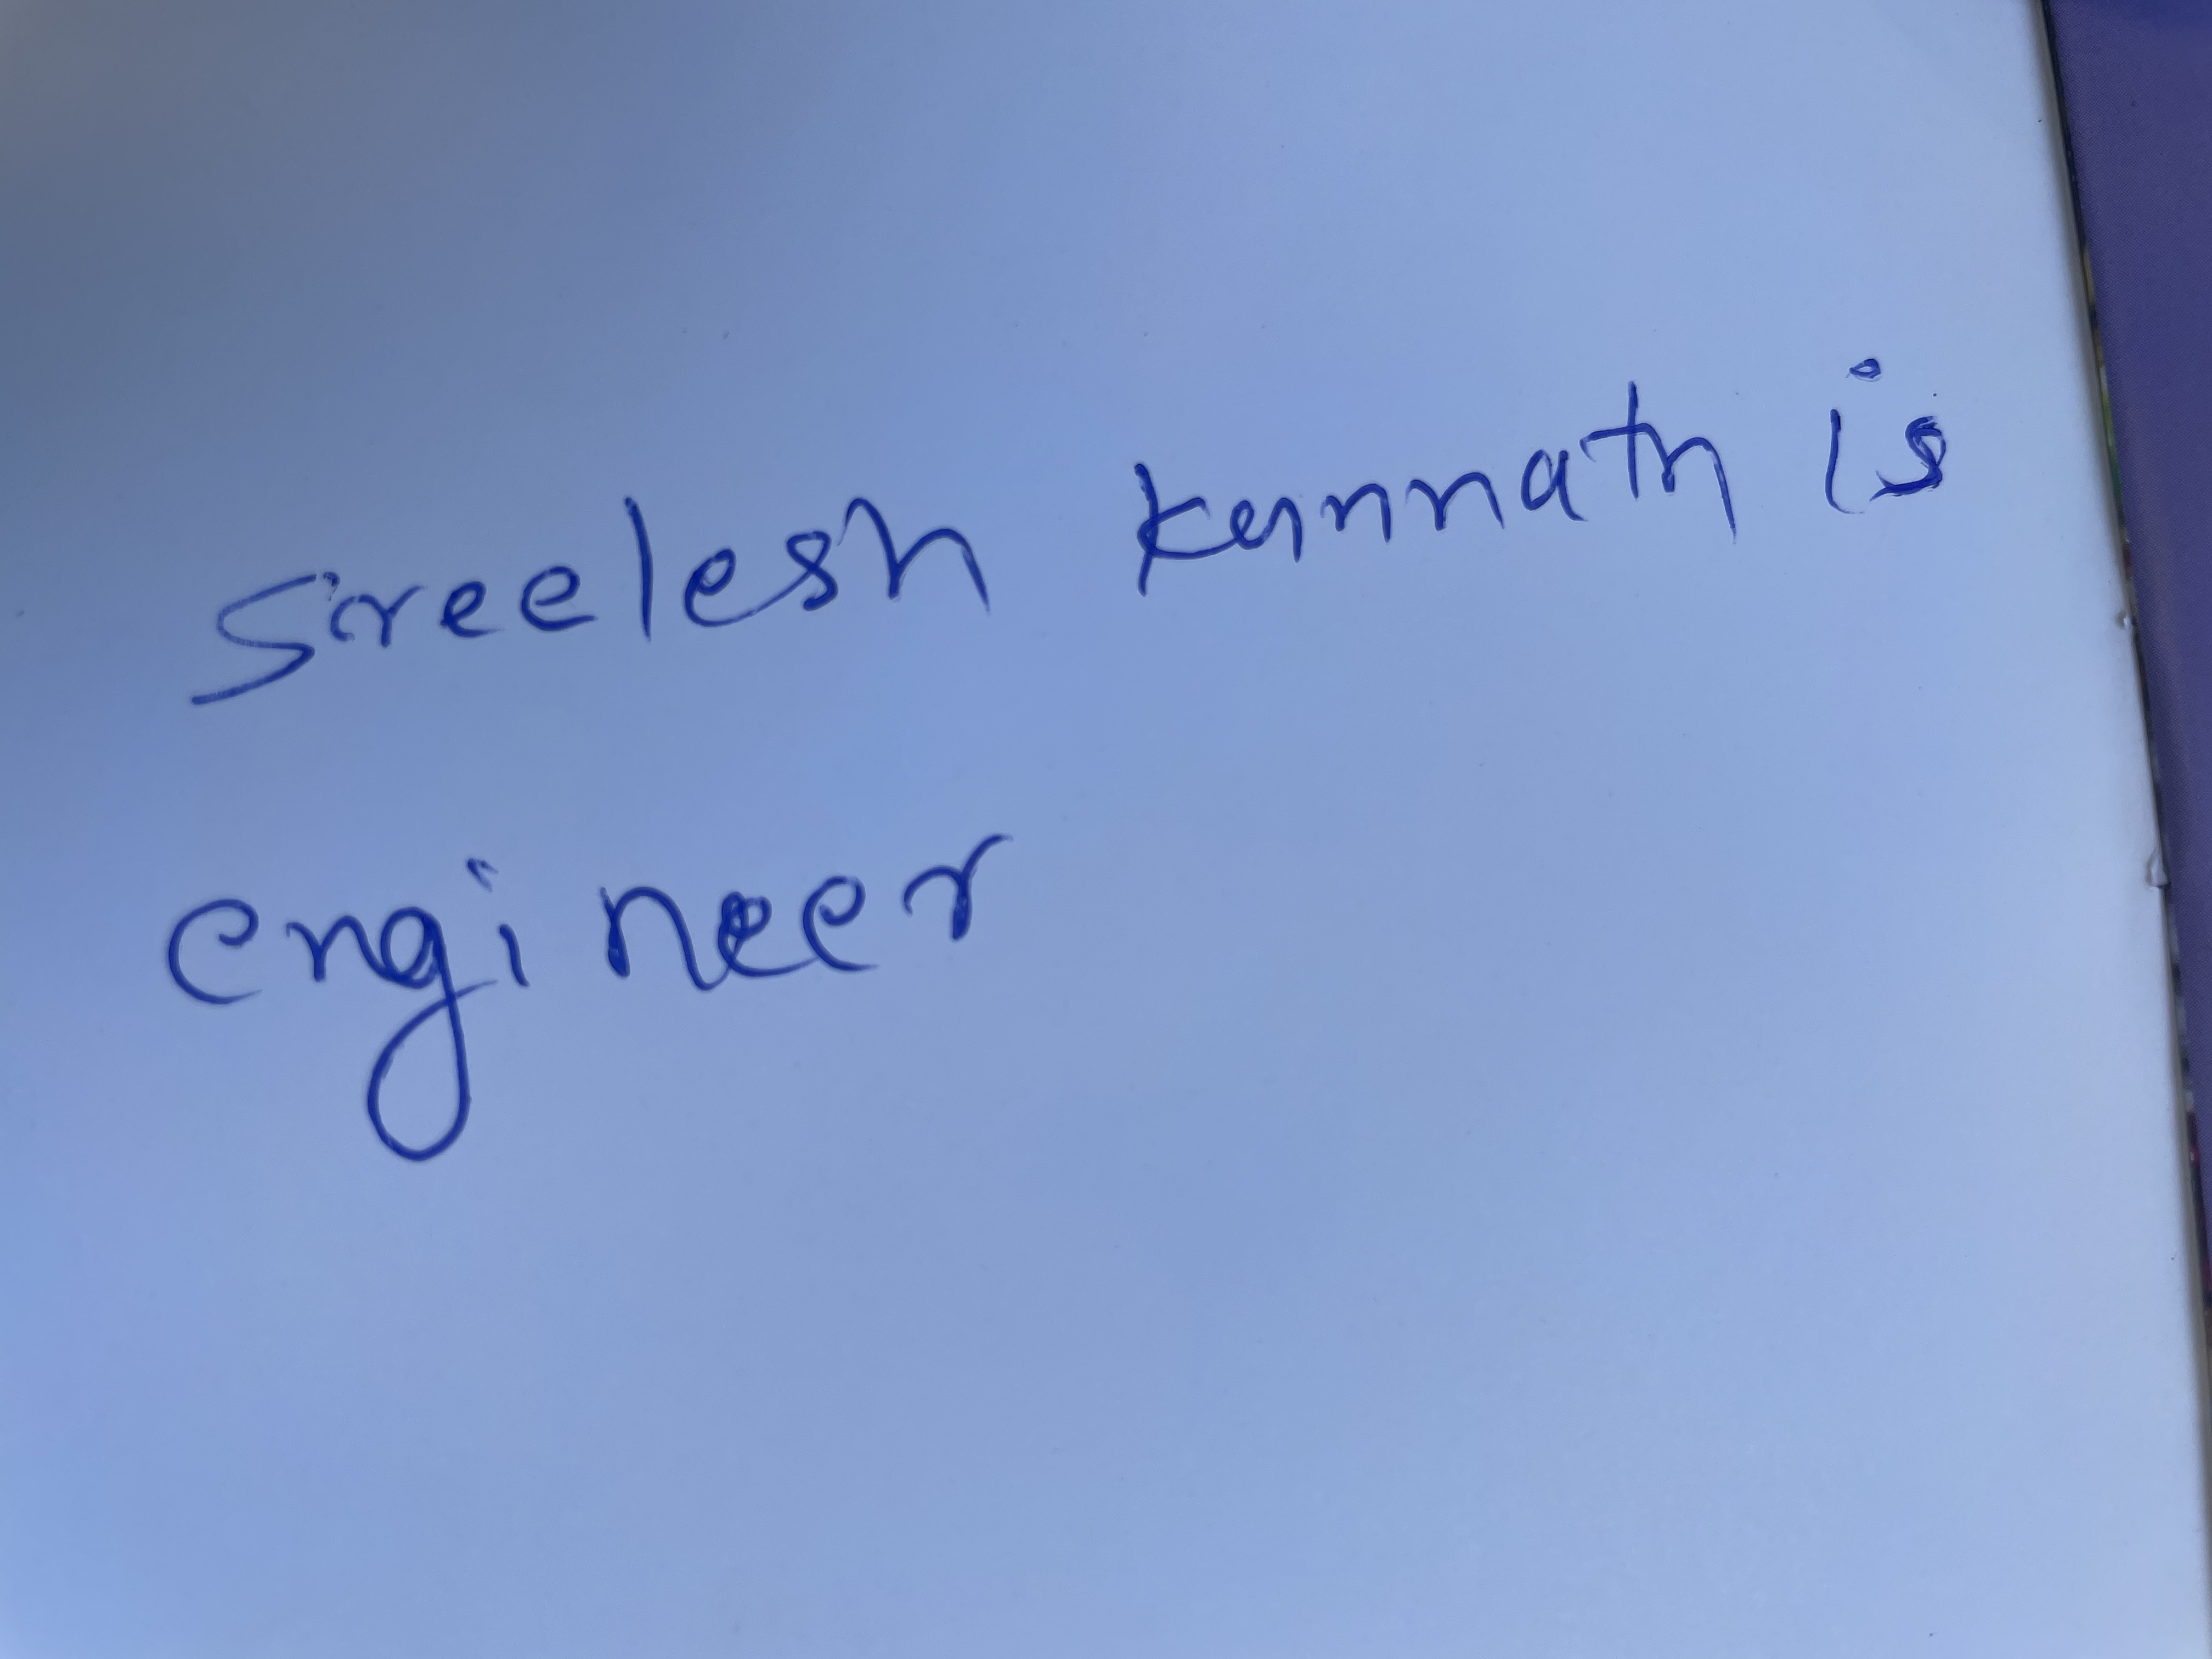 Sreelesh kannath is
engineer